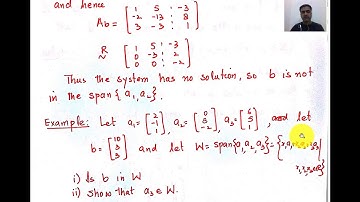 and hence
A_b = [ 1 5 : -3
-2 -13 : 8
3 -3 : 1 ]
R ~ [ 1 5 : -3
0 -3 : 2
0 0 : -2 ]
Thus the system has no solution, so b is not
in the span { a₁, a₂ }.
Example: Let a₁ = [ 2 -1 ], a₂ = [ 0 8 -2 ], a₃ = [ 6 5 1 ], and let
b = [ 10 3 3 ] and let W = span{a₁, a₂, a₃} =
i) Is b in W
ii) show that a₃ ∈ W.